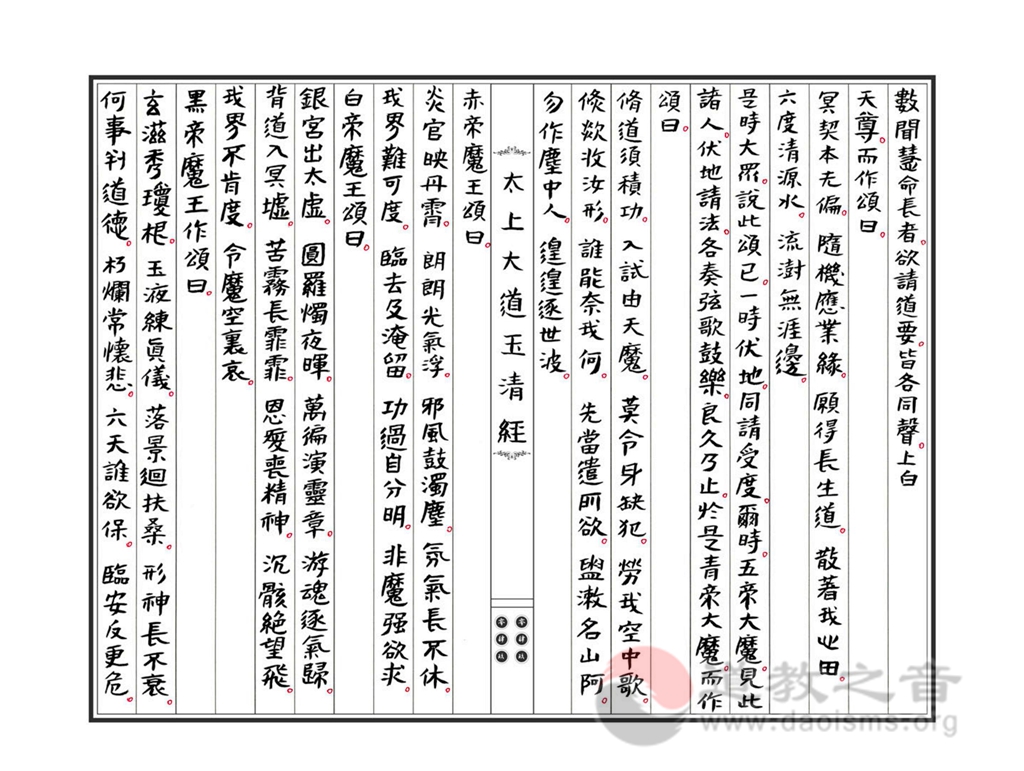 數聞慧命長者。欲請道要。皆各同聲。上白
天尊。而作頌曰。
冥契本无偏。隨機應業緣。願得長生道。散著我心田。
六度清源水。流澍無涯邊。
是時大眾。說此頌已。一時伏地。同請受度。爾時。五帝大魔。見此
諸人。伏地請法。各奏弦歌鼓樂。良久乃止。於是青帝大魔。而作
頌曰。
脩道須積功。入試由天魔。莫令身缺犯。勞我空中歌。
倏欻收汝形。誰能奈我何。先當遣所欲。盥漱名山阿。
勿作塵中人。遑遑逐世波。
太上大道玉清經
赤帝魔王頌曰。
炎官映丹霄。朗朗光氣浮。邪風鼓濁塵。氛氣長不休。
我界難可度。臨去及淹留。功過自分明。非魔强欲求。
白帝魔王頌曰。
銀宮出太虛。圓羅燭夜暉。萬徧演靈章。游魂逐氣歸。
背道入冥墟。苦霧長霏霏。恩愛喪精神。沉骸絕望飛。
我界不肯度。令魔空裏哀。
黑帝魔王作頌曰。
玄滋秀瓊根。玉液練眞儀。落景迴扶桑。形神長不衰。
何事刋道德。朽爛常懷悲。六天誰欲保。臨安反更危。
道教之音
www.daoisms.org